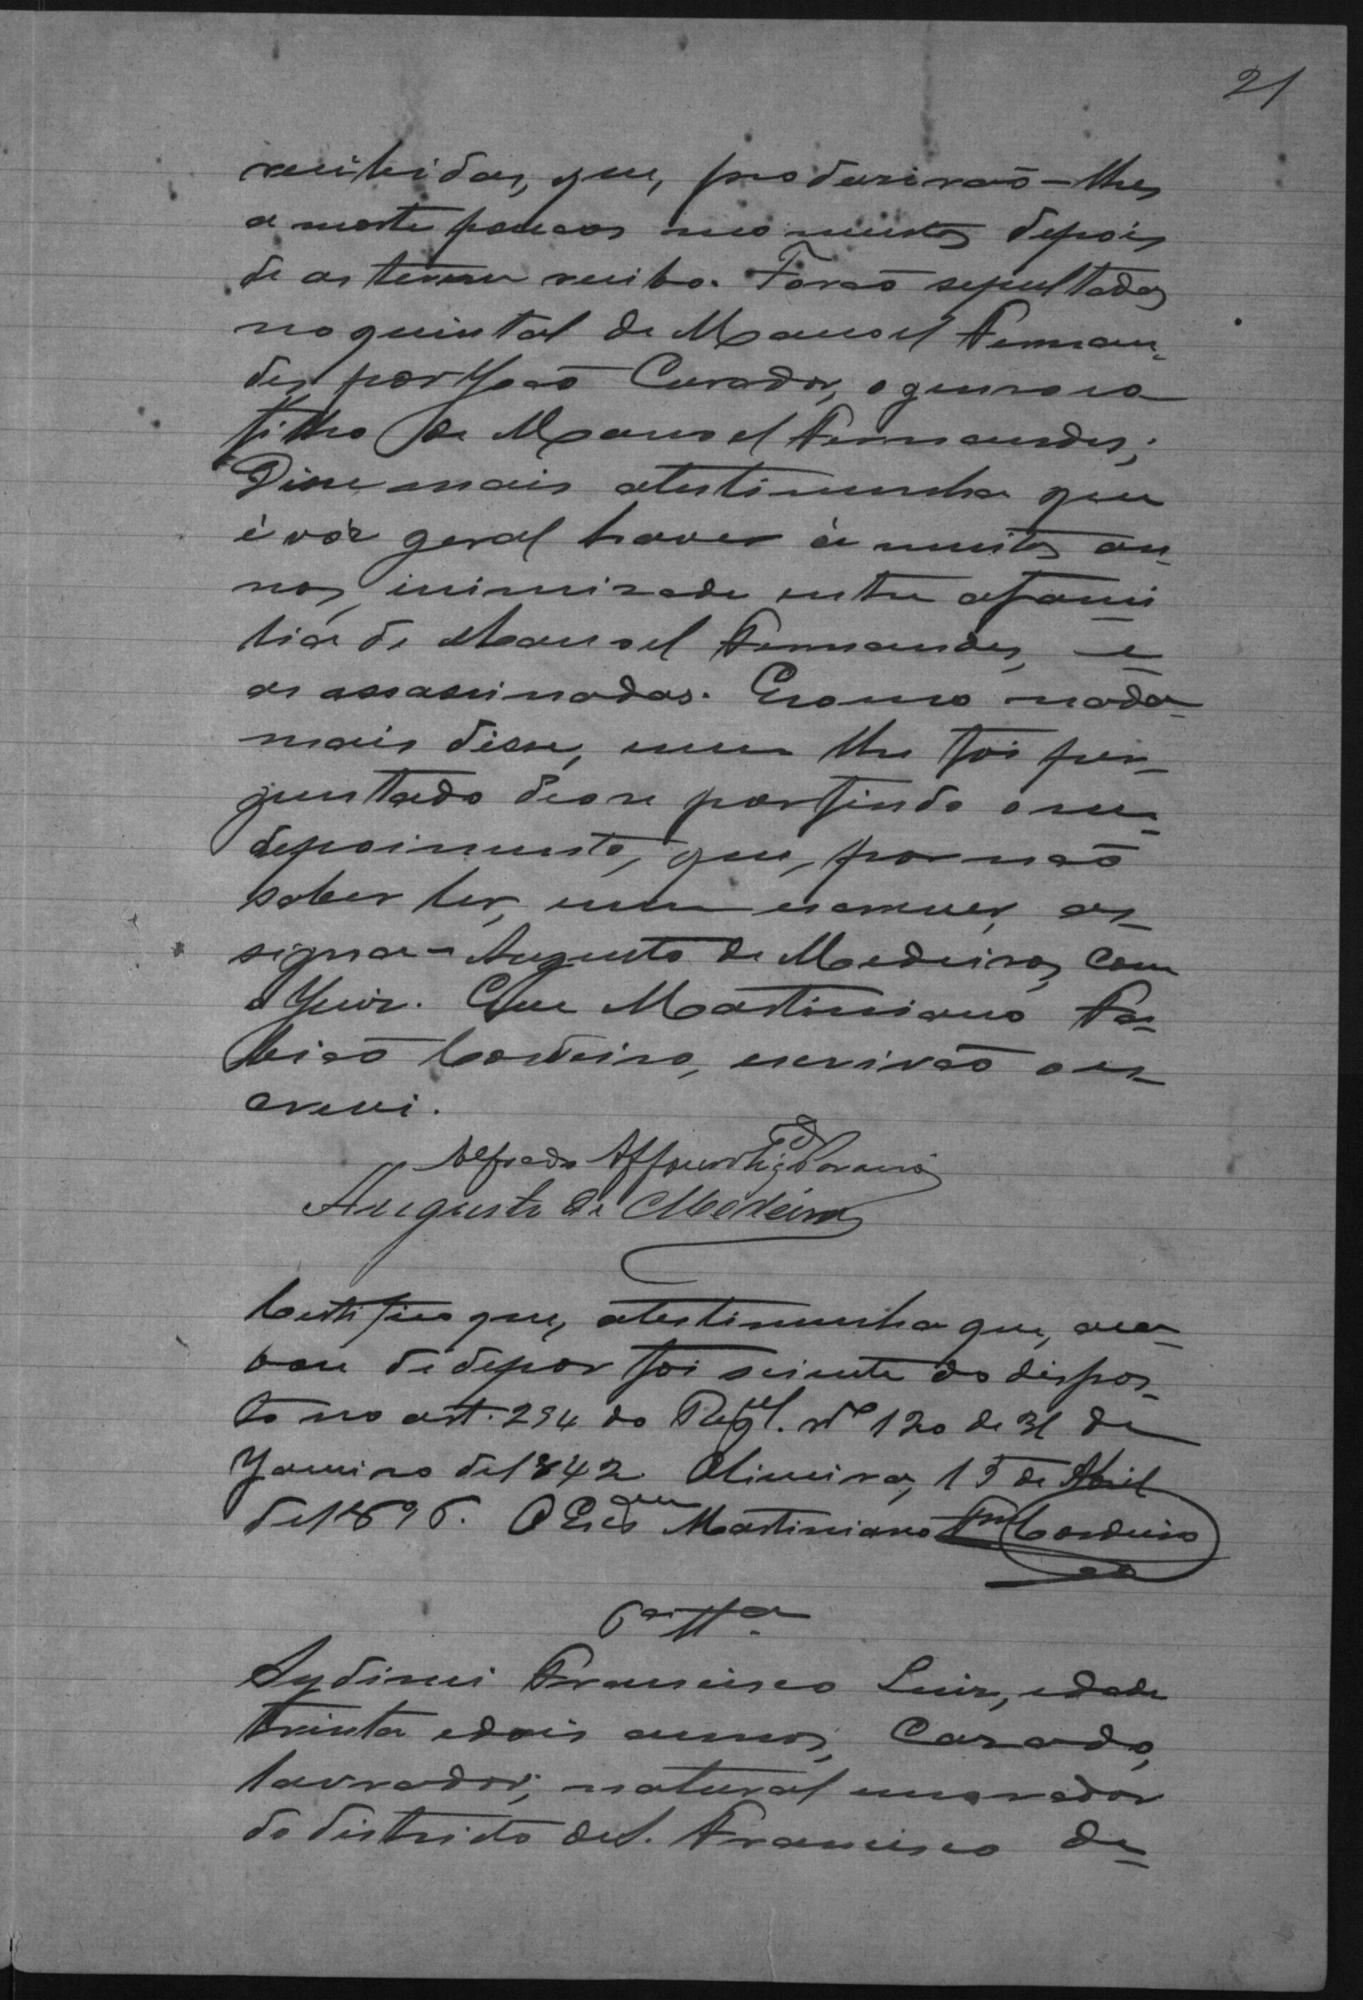 21
recibidas, que, produzirão-lhes
a morte poucos momentos depois
de as terem recibo. Forão sepultados
no quintal de Manoel Fernan-
des, por João Curador, o genro e o
filho de Manoel Fernandes;
Disse mais atestimunha que
é vóz geral haver á muitos an-
nos, inimizade entre afami
lia de Manoel Fernandes, e
os assassinados. E como nada
mais disse, nem lhe foi per-
guntado deose por findo o seu
depoimento, que, por não
saber ler, nem escrever, as-
signa - Augusto de Medeiros, com
o Juiz. Eu Martiniano Fa-
bião Cordeiro, escrivão o es-
crevi.
Alfredo
Augusto de Medeiros
Certifico que, atestimunha que, aca-
bou de depor foi sciente do dispos-
to no art. 294 do Regul. nº 120 de 31 de
Janeiro de 1842. Limeira, 15 de Abril
de 1896. O Escam Martiniano Cordeiro
6ª Tta.
Francisco Luiz, edade
trinta e dois annos, Casado,
lavrador, natural emorador
do districto de S. Francisco de